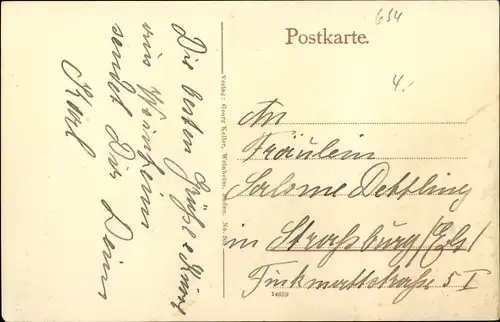 Postkarte.
654
4.-
An
Fräulein
Salome Dettling
in Straßburg/Els/
Finkmattstraße 5 I
Die besten Grüße
aus Weinheim
sendet Dir Dein
Karl
Verlag: Georg Keller, Weinheim, Baden. No. 50
14659